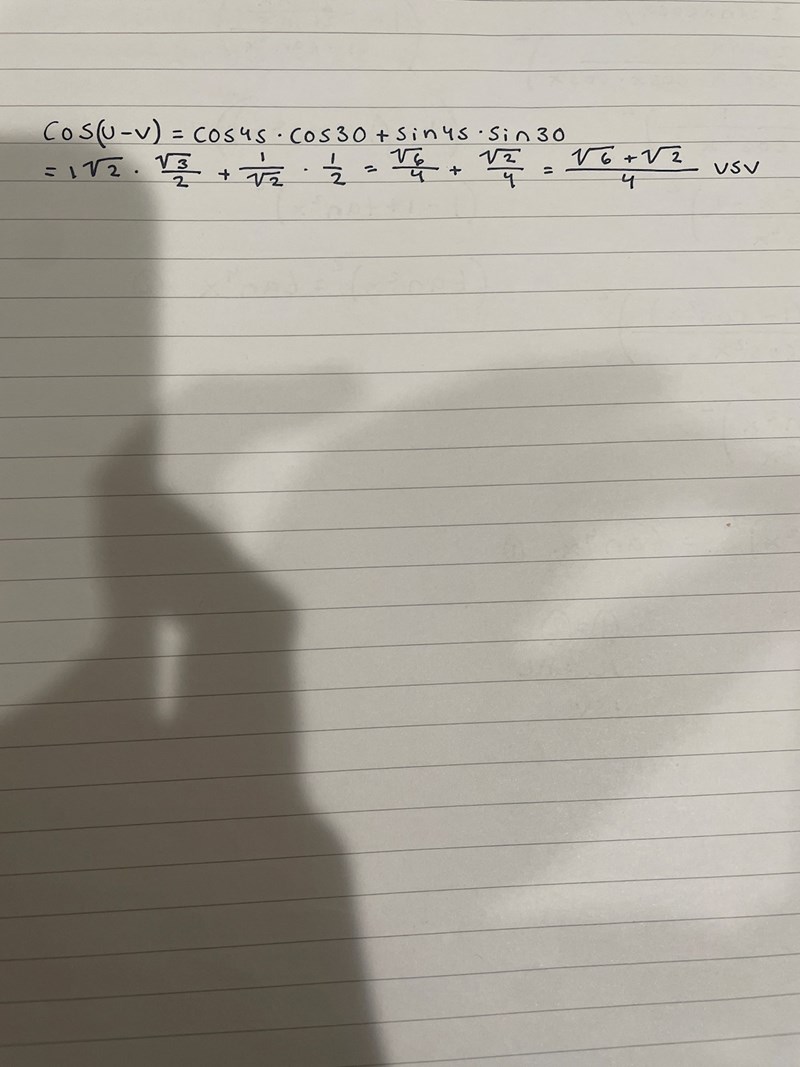 cos(u-v) = cos45 · cos30 + sin45 · sin30
= 1√2 · √3/2 + 1/√2 · 1/2 = √6/4 + √2/4 = (√6 + √2)/4 VSV